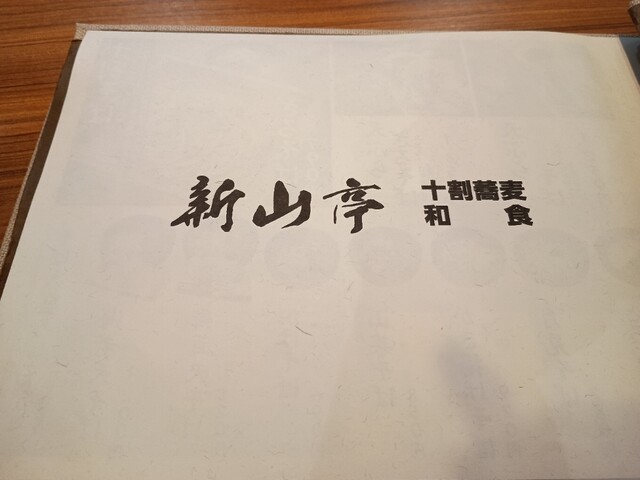 新山亭
十割蕎麦
和食